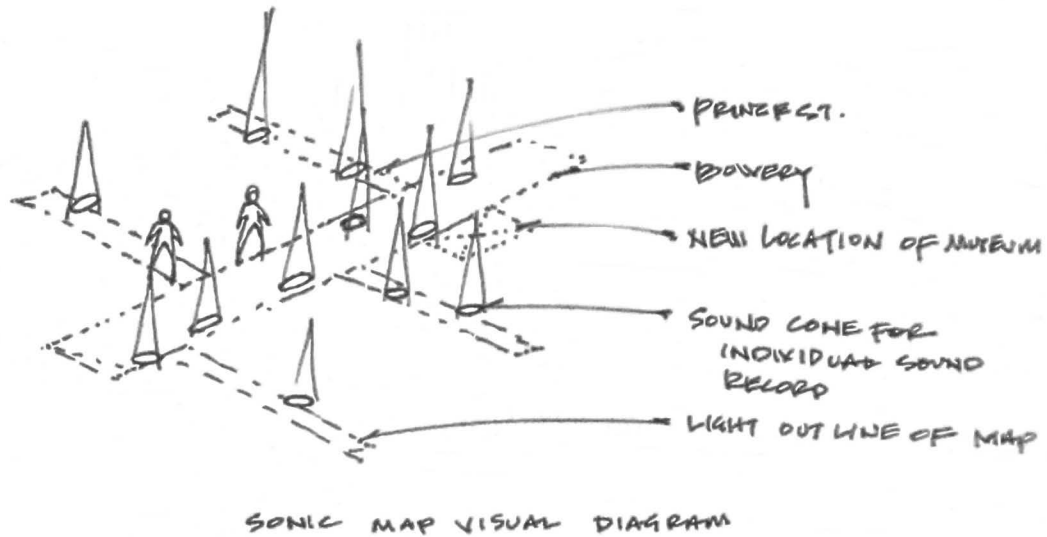 PRINCE ST.
BOWERY
NEW LOCATION OF MUSEUM
SOUND CONE FOR
INDIVIDUAL SOUND
RECORD
LIGHT OUTLINE OF MAP
SONIC MAP VISUAL DIAGRAM